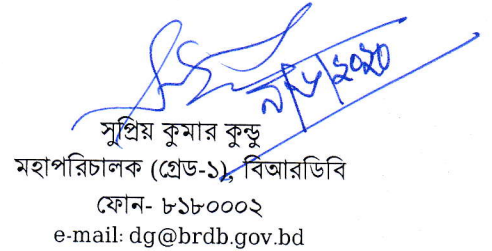 সুপ্রিয় কুমার কুন্ডু
মহাপরিচালক (গ্রেড-১), বিআরডিবি
ফোন- ৮১৮০০০২
e-mail: dg@brdb.gov.bd